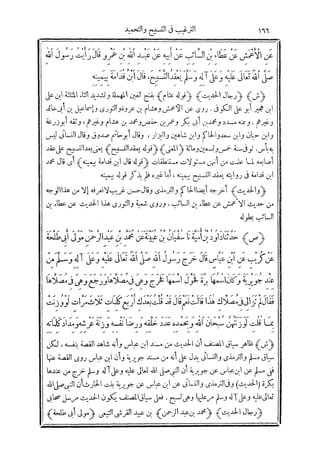 ١٦٦ الترغيب فى التسبيح والتحميد
عن الأعمش عن عطاء بن السائب عن أبيه عن عبد الله بن عمرو قال رأيت رسول الله
صلى الله تعالى عليه وعلى آله وسلم يعقد التسبيح، قال ابن قدامة بيمينه
﴿ش﴾ ﴿رجال الحديث﴾ ﴿قوله عثام﴾ بفتح العين المهملة وتشديد الثاء المثلثة ابن على
ابن هجير أبو على الكوفى . روى عن الأعمش وهشام بن عروة والثورى وإسماعيل بن أبى خالد
وغيرهم . وعنه مسدد ومحمد بن أبى بكر وعمر بن حفص ومحمد بن هشام وغيرهم، وثقه أبو زرعة
وابن حبان وابن سعد والحاكم وابن شاهين والبزار ، وقال أبو حاتم صدوق وقال النسائى ليس
به بأس. توفى سنة خمس وتسعين ومائة ﴿المعنى﴾ ﴿قوله يعقد التسبيح﴾ يعنى يعد التسبيح على عقد
أصابعه لما علمت من أنهن مسئولات مستنطقات ﴿قوله قال ابن قدامة بيمينه﴾ أى قال محمد
ابن قدامة فى روايته يعقد التسبيح بيمينه ، أما غيره فلم يذكر قوله بيمينه
﴿والحديث﴾ أخرجه أيضا الحاكم والترمذى وقال حسن غريب لانعرفه إلا من هذا الوجه
من حديث الأعمش عن عطاء بن السائب . وروى شعبة والثورى هذا الحديث عن عطاء بن
السائب بطوله
﴿ص﴾ حدثنا داود بن أمية نا سفيان بن عيينة عن محمد بن عبد الرحمن مولى أبى طلحة
عن كريب عن ابن عباس قال خرج رسول الله صلى الله تعالى عليه وعلى آله وسلم من
عند جويرية وكان اسمها برة فحول اسمها فخرج وهى فى مصلاها ورجع وهى فى مصلاها
فقال لم تزالى فى مصلاك هذا قالت نعم قال قد قلت بعدك أربع كلمات ثلاث مرات لو وزنت
بما قلت لوزنتهن سبحان الله وبحمده عدد خلقه ورضا نفسه وزنة عرشه ومداد كلماته
﴿ش﴾ ظاهر سياق المصنف أن الحديث من مسند ابن عباس وأنه شاهد القصة بنفسه، لكن
سياق مسلم والترمذى والنسائى يدل على أنه من مسند جويرية وأن ابن عباس روى القصة عنها
ففى مسلم عن ابن عباس عن جويرية أن النبى صلى الله تعالى عليه وعلى آله وسلم خرج من عندها
بكرة ﴿الحديث﴾ وفى الترمذى والنسائى عن ابن عباس عن جويرية بنت الحارث أن النبى صلى الله
تعالى عليه وعلى آله وسلم مر عليها وهى تسبح . فعلى سياق المصنف يكون الحديث مرسل صحابى
﴿رجال الحديث﴾ ﴿محمد بن عبد الرحمن﴾ بن عبيد القرشى التيمى ﴿مولى أبى طلحة﴾